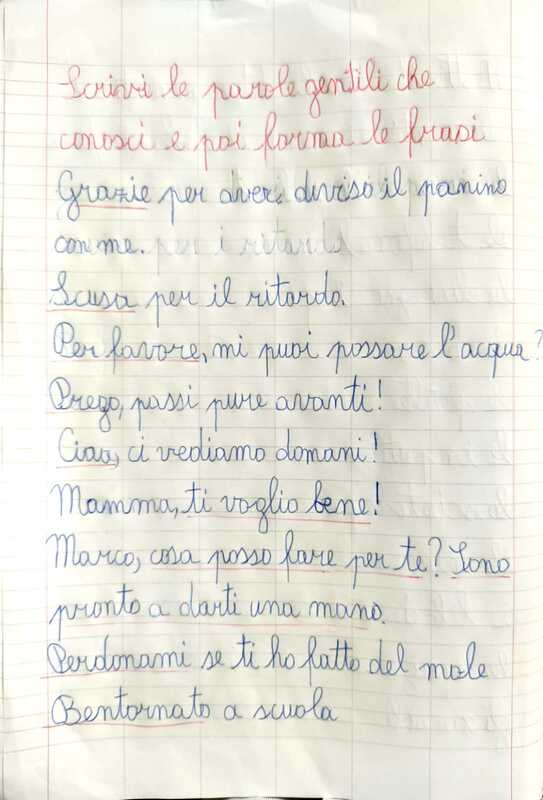 Scrivi le parole gentili che
conosci e poi forma le frasi
Grazie per aver diviso il panino
con me.
Scusa per il ritardo.
Per favore, mi puoi passare l'acqua?
Prego, passi pure avanti!
Ciao, ci vediamo domani!
Mamma, ti voglio bene!
Marco, cosa posso fare per te? Sono
pronto a darti una mano.
Perdonami se ti ho fatto del male
Bentornato a scuola